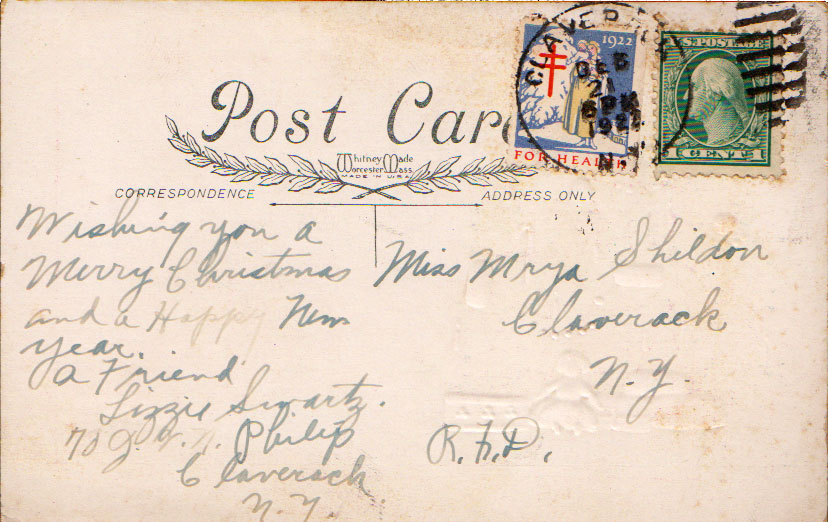 Post Card
Whitney Made
Worcester Mass
MADE IN U.S.A.
CORRESPONDENCE
ADDRESS ONLY
1922
FOR HEALTH
CLAVER
DEC
2
6 PM
192
N.Y.
U.S. POSTAGE
1 CENT 1
Wishing you a
Merry Christmas
and a Happy New
year.
a Friend
Lizzie Swartz.
Philip
Claverack
N.Y.
Miss Mrya Sheldon
Claverack
N.Y.
R.F.D.